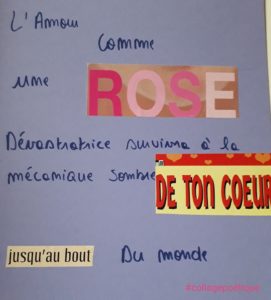 L'Amour
comme
une ROSE
Dévastratrice survivra à la
mécanique sombre DE TON COEUR
jusqu'au bout Du monde
#collagepoétique